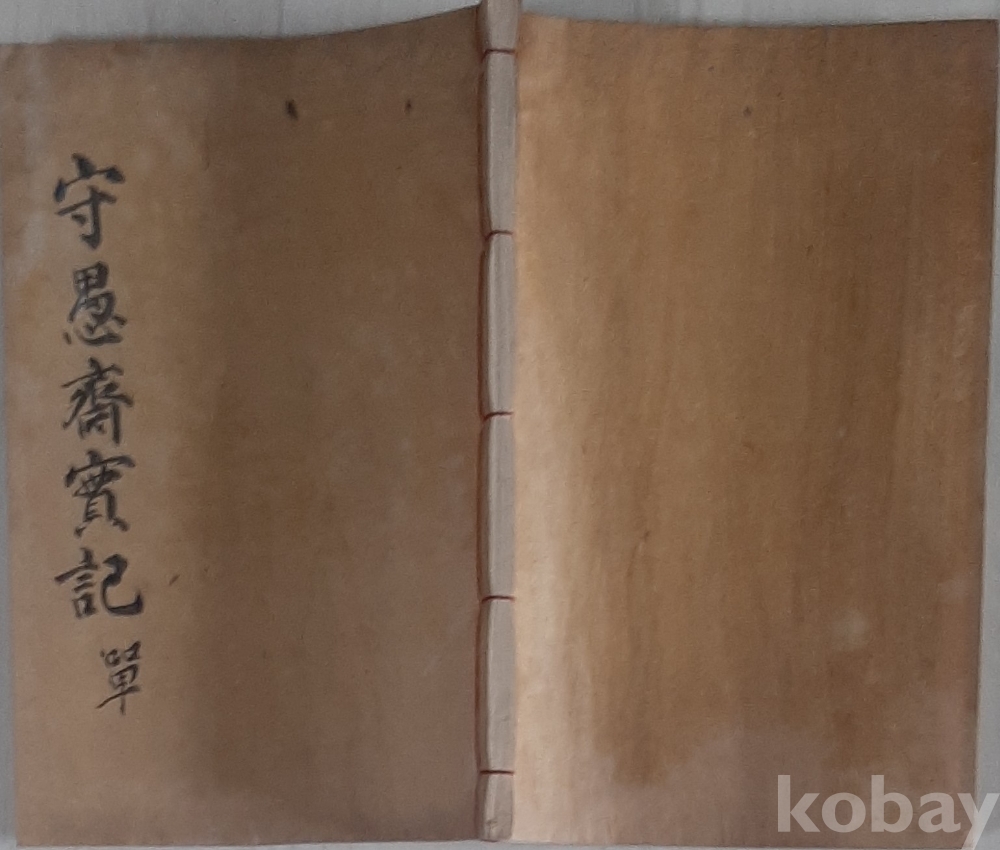 守愚齋實記
單
kobay